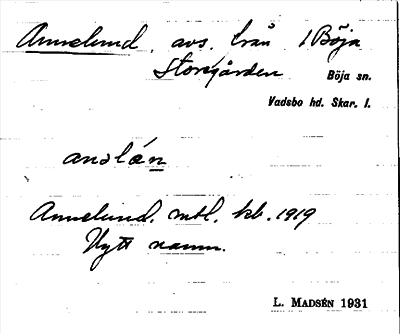 Annelund, avs. från 1 Böja
Storegården
Böja sn.
Vadsbo hd. Skar. l.
Annelund. mtl. kb. 1919
Nytt namn.
L. MADSÉN 1931